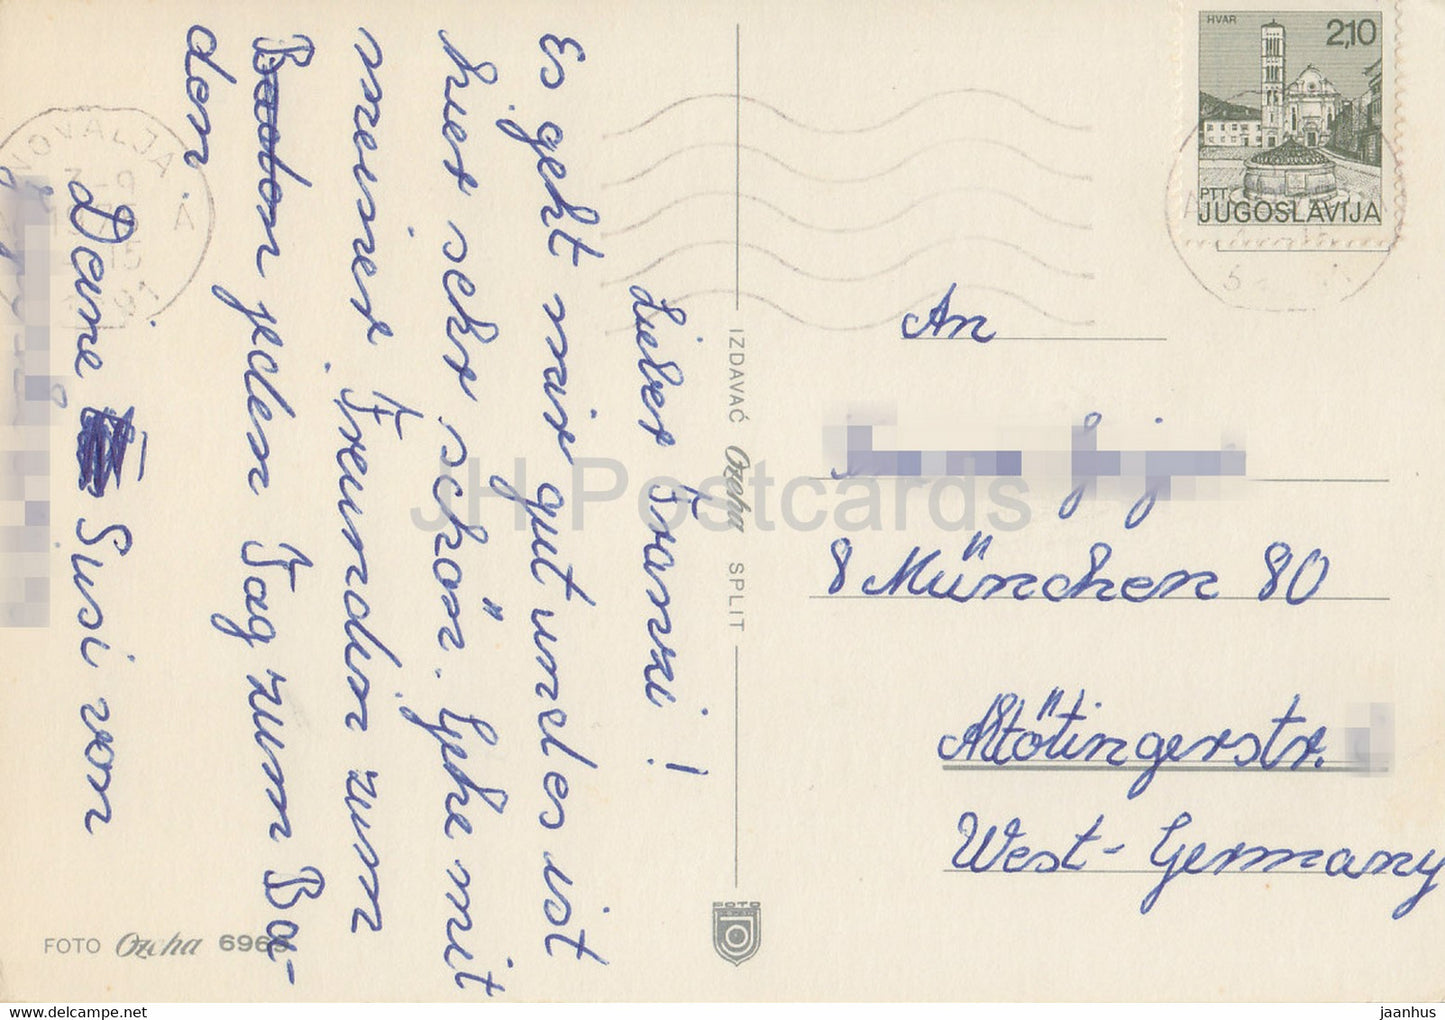 Lieber Franzi!
Es geht mir gut und es ist
hier sehr schön. Gehe mit
meiner Freundin zum
Baden jeden Tag zum Ba-
den.
Deine Susi von
HVAR
2,10
PTT
JUGOSLAVIJA
An
8 München 80
Altötingerstr.
West-Germany
IZDAVAČ Ozeha SPLIT
FOTO
FOTO Ozeha 696
NOVALJA
3-9
15
91
A
JH Postcards
www.delcampe.net
jaanhus